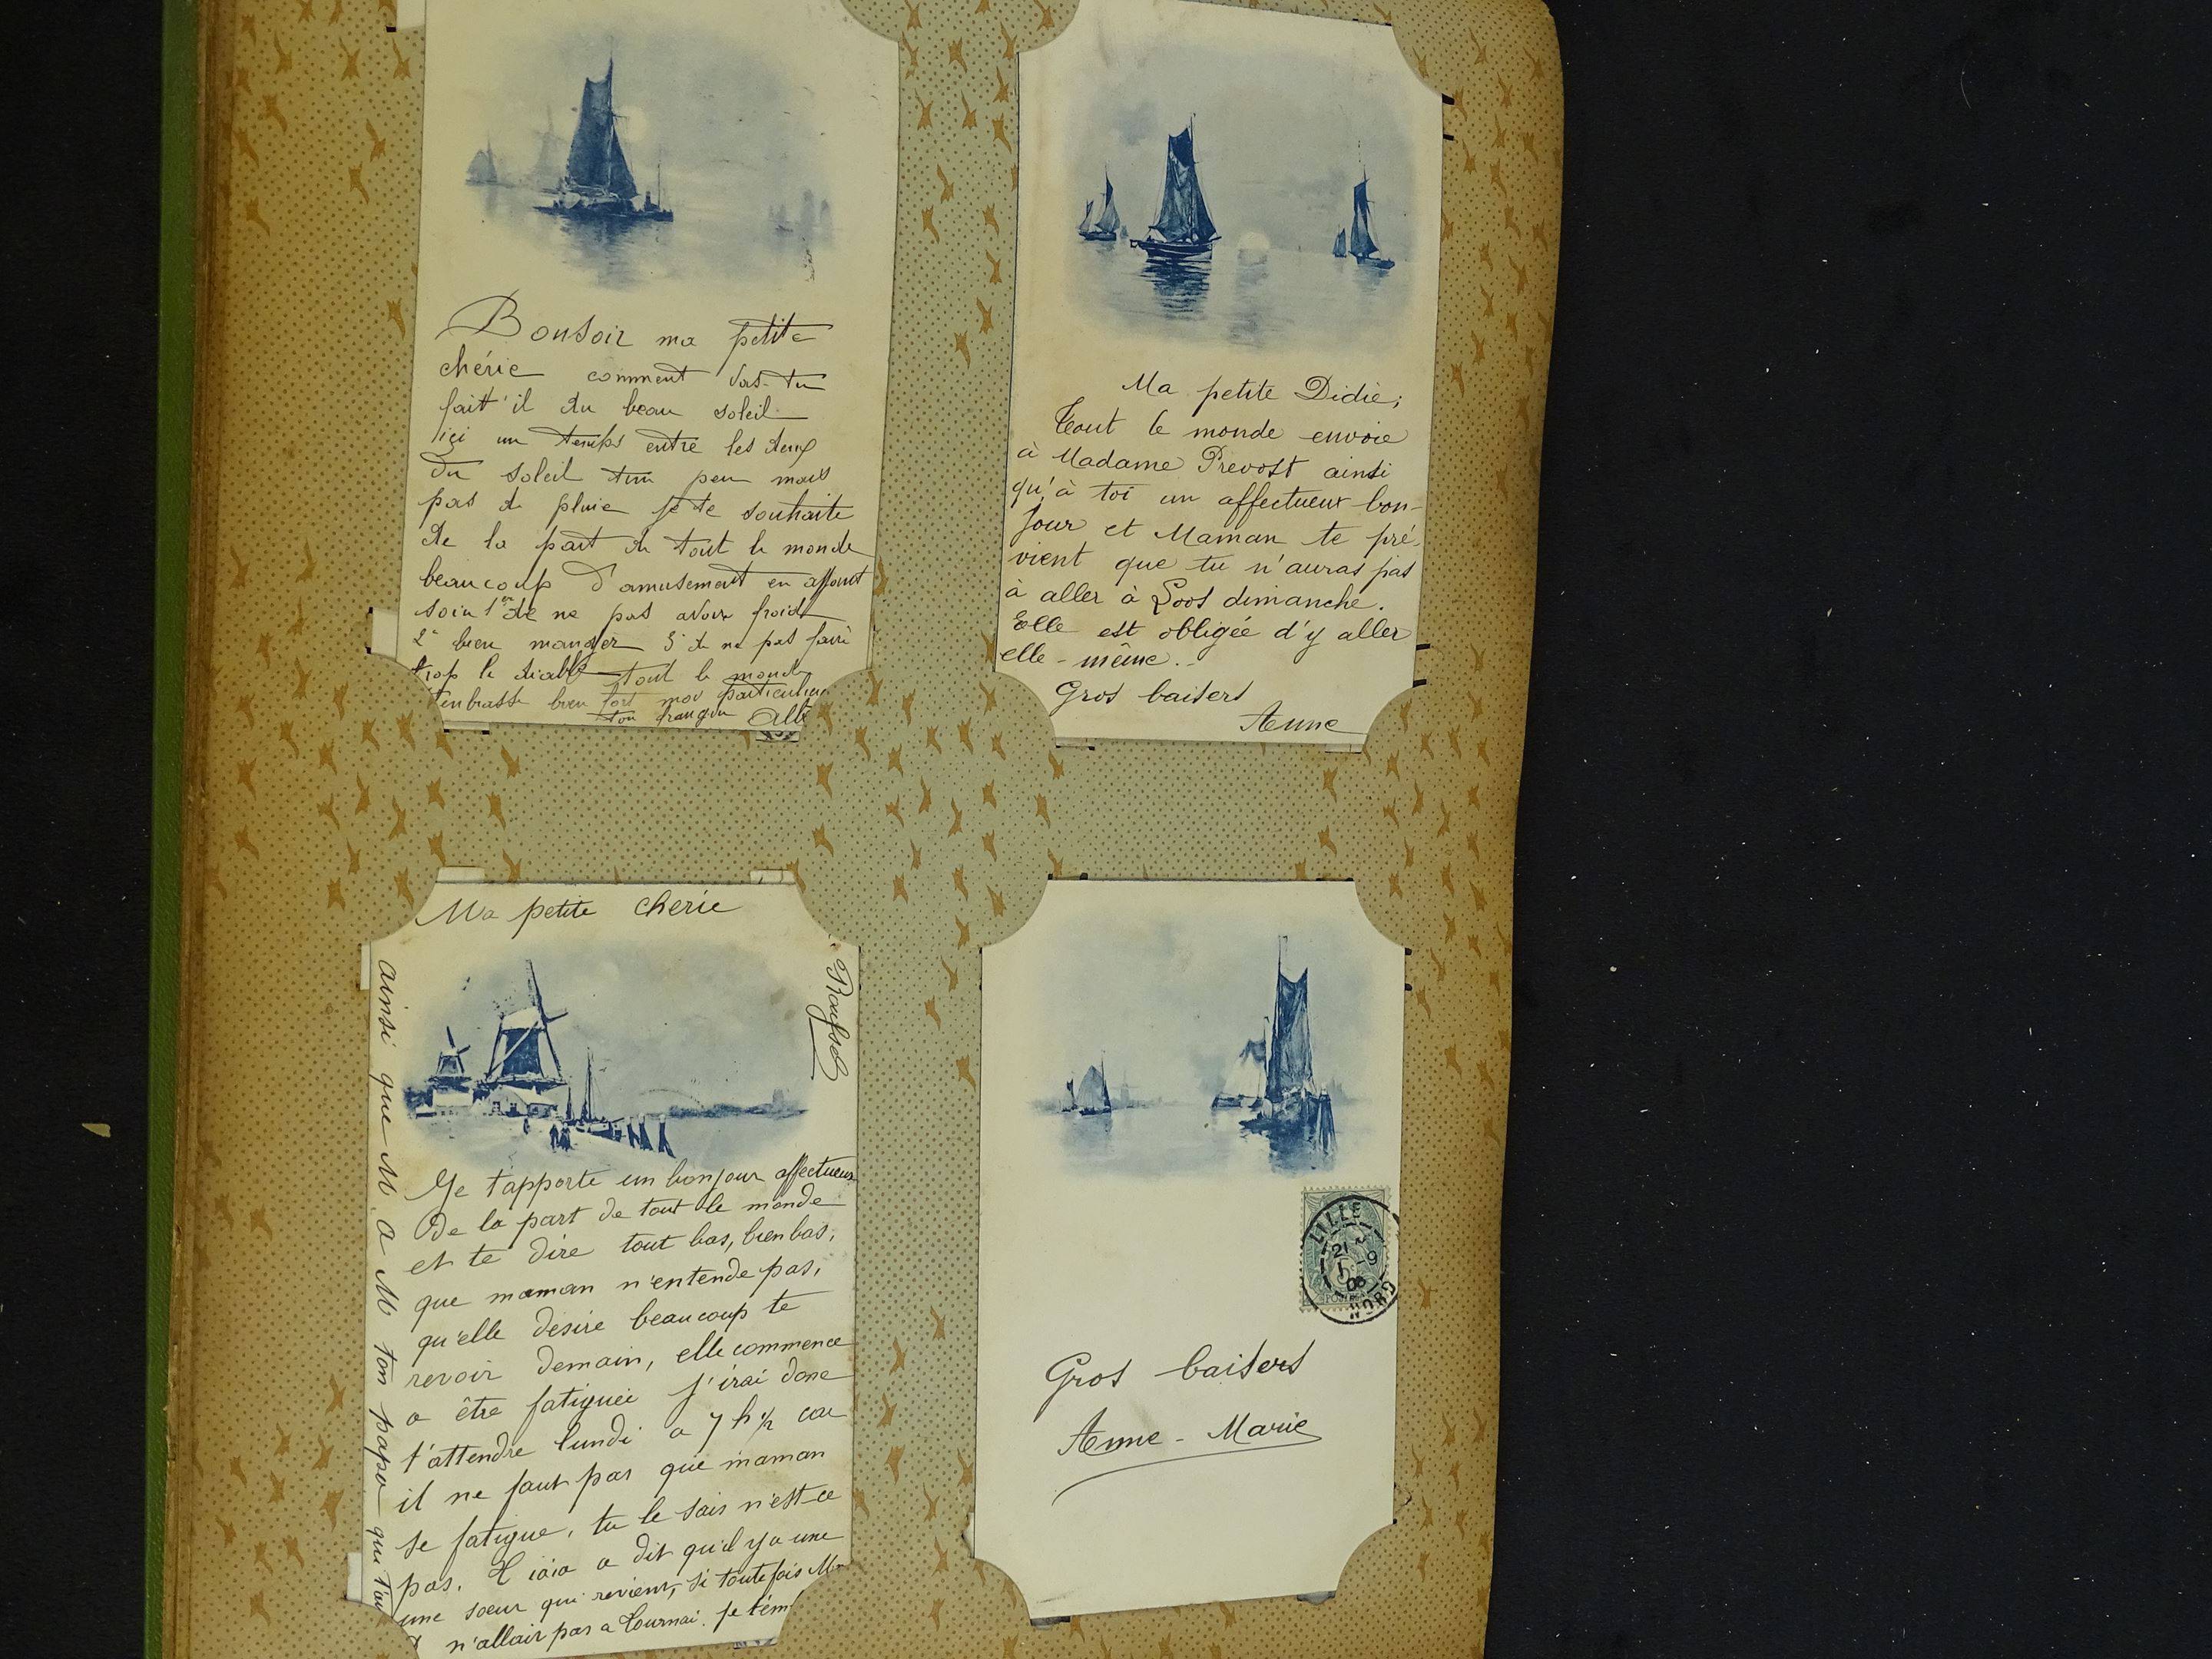 Bonsoir ma petite
chérie comment vas-tu
fait'il du beau soleil
içi un temps entre les deux
du soleil un peu mais
pas de pluie je te souhaite
de la part de tout le monde
beaucoup d'amusement en ayant
soin 1er de ne pas avoir froid
2e bien manger 3e de ne pas faire
trop le diable tout le monde
t'enbrasse bien fort moi
ton frangin
Ma petite Didie;
Tout le monde envoie
à Madame Prevost ainsi
qu'à toi un affectueux bon-
jour et Maman te pré-
vient que tu n'auras pas
à aller à Loos dimanche.
Elle est obligée d'y aller
elle-même.-
Gros baisers
Anne
Ma petite cherie
Je t'apporte un bonjour affectueux
de la part de tout le monde
et te dire tout bas, bien bas,
que maman n'entende pas,
qu'elle desire beaucoup te
revoir demain, elle commence
a être fatiguée j'irai donc
t'attendre lundi a 7 h ½ car
il ne faut pas que maman
se fatigue, tu le sais n'est-ce
pas. a dit qu'il y a une
une soeur qui revient, si toutefois
n'allait pas a Tournai. je
ainsi que M. a M ton papa qui
LILLE
21
5-9
05
NORD
POSTES
Gros baisers
Anne-Marie